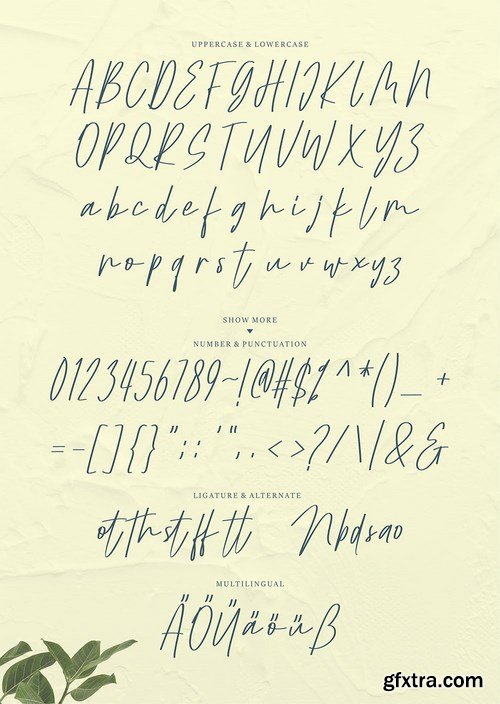 UPPERCASE & LOWERCASE
ABCDEFGHIJKLMN
OPQRSTUVWXYZ
abcdefghijklm
nopqrstuvwxyz
SHOW MORE
NUMBER & PUNCTUATION
0123456789~!@#$%^*()_+
=-[]{}":;'",.<>?/\|&&
LIGATURE & ALTERNATE
otthstfftt Nbdsao
MULTILINGUAL
ÄÖÜäöüß
gfxtra.com